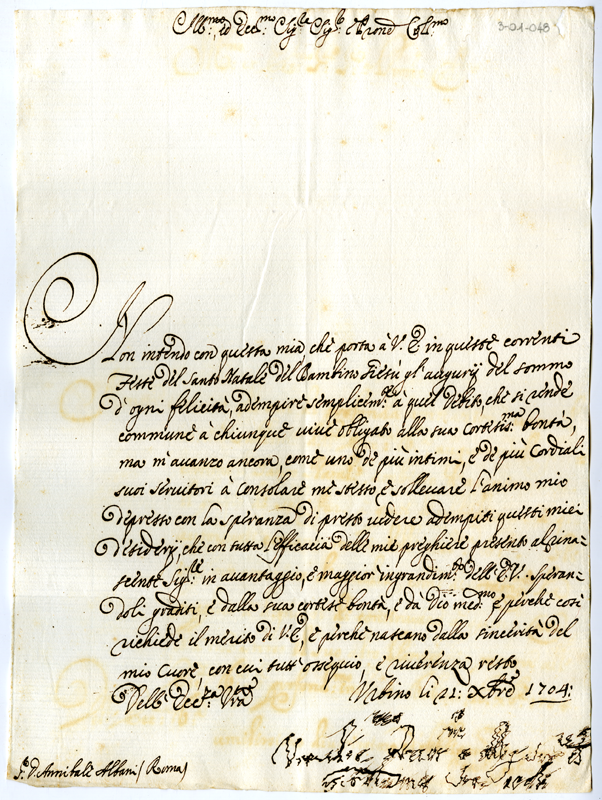 Ill.mo, ed Ecc.mo Sig.re Sig.r e Prone Col.mo
3-01-048
Non intendo con questa mia, che porta à V. E. in queste correnti
Feste del Santo Natale del Bambino Giesù gl'augurij del sommo
d'ogni felicità, adempire semplicem.te à quel debito, che si rende
commune à chiunque vive obligato alla sua Cortesis.ma bontà,
ma m'avanzo ancora, come uno de più intimi, e de più Cordiali
suoi servitori à consolare me stesso, e sollevare l'animo mio
depresso con la speranza di presto vedere adempiti questi miei
desiderij, che con tutta l'efficacia delle mie preghiere presento al rina-
scente Sig.re in avantaggio, e maggior ingrandim.to dell'E.V. Speran-
doli graditi, e dalla sua cortese bontà, e da Dio med.mo e perche così
richiede il merito di V.E., e perche nascano dalla sincerità del
mio Cuore, con cui tutt'ossequio, e riverenza resto
Dell'Ecc.za V.ra
Urbino li 21: Xbre 1704:
S.r D. Annibale Albani (Roma)